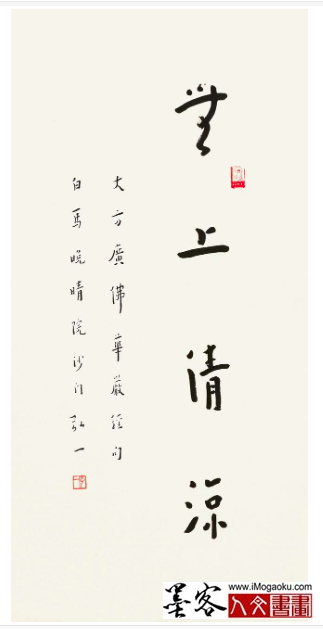 無上清涼
大方廣佛華嚴經句
白馬晚晴院沙門弘一
www.iMogaoku.com
墨客
人文書畫